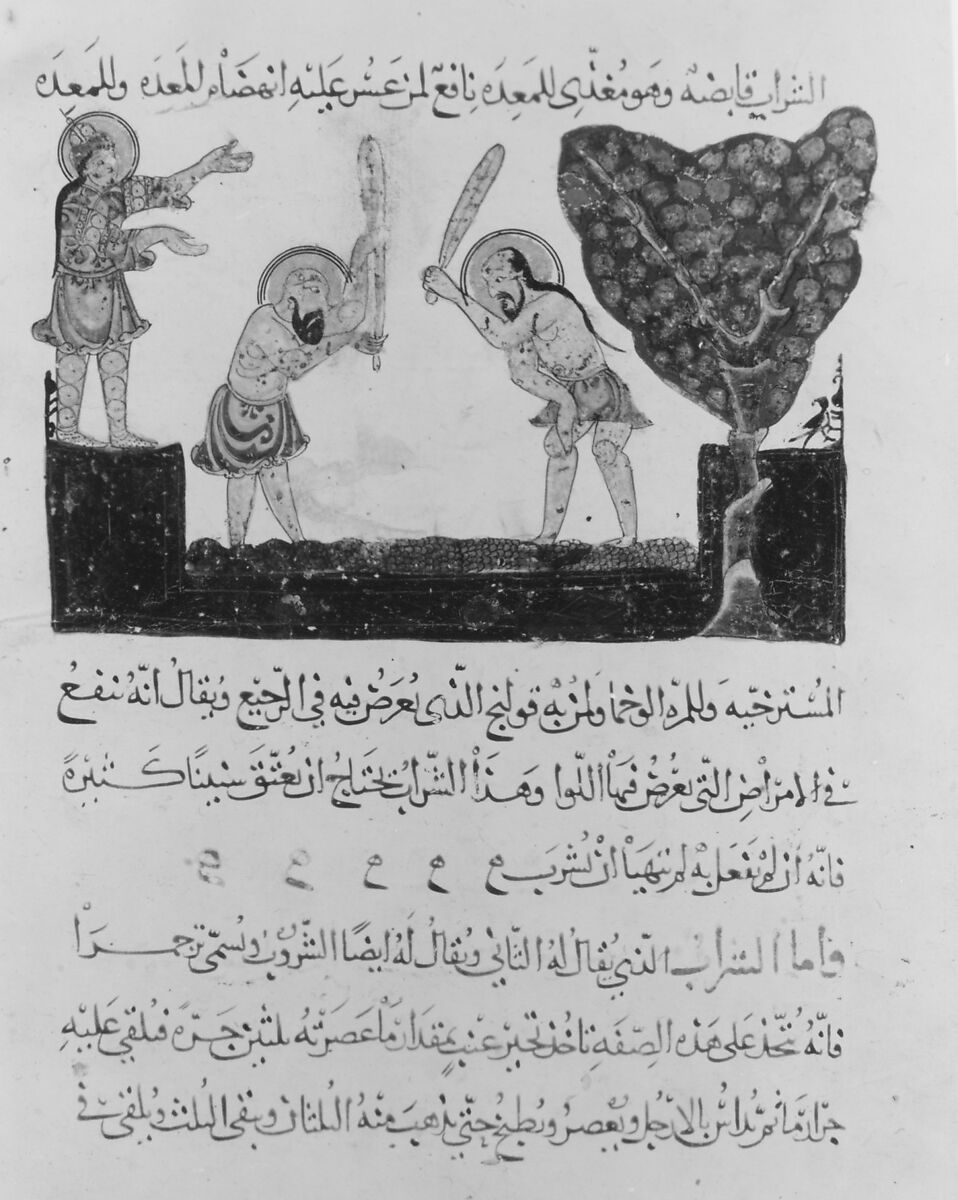 الشراب قابضة وهو مغذي للمعده نافع لمن عسر عليه انهضام المعده وللمعده
المسترخيه وللمره الوخما ولمن به قولنج الذي يعرض فيه في الرجيع ويقال انه ينفع
في الامراض التي يعرض فيها اللوا وهذا الشراب يحتاج ان يعتق سنينا كثيرة
فانه ان لم يفعل به لم يتهيا ان يشرب
فاما الشراب الذي يقال له الثاني ويقال له ايضا الشروب ويسمى ترجمرا
فانه يتخذ على هذه الصفة تاخذ تجير عنب بمقدار ما عصرته ثلثين جرة فيلقى عليه
جرار ما ثم يداس بالارجل ويعصر ويطبخ حتى يذهب منه الثلثان ويبقى الثلث ويلقى في